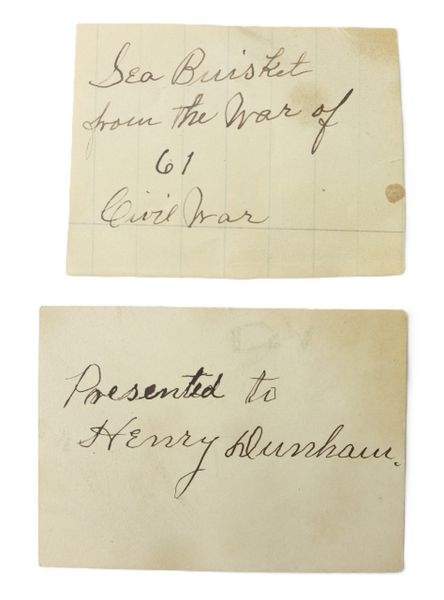 Sea Buisket
from the War of
61
Civil War
Presented to
Henry Dunham.